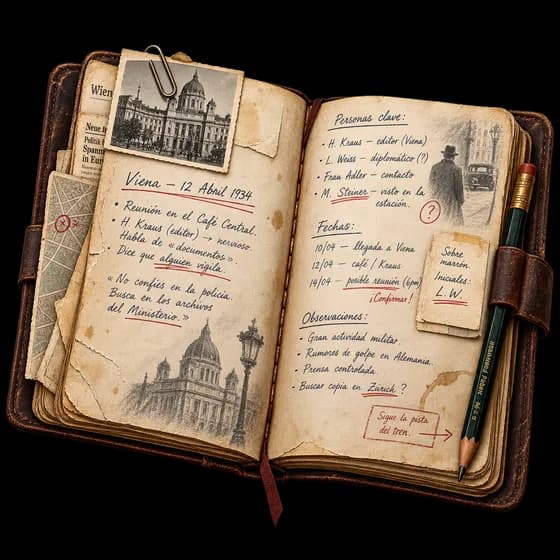 Wien
Neue
Politik
Spann
in Eur
Viena – 12 Abril 1934
• Reunión en el Café Central.
• H. Kraus (editor) → nervioso.
Habla de «documentos».
Dice que alguien vigila.
«No confíes en la policía.
Busca en los archivos
del Ministerio.»
Personas clave:
• H. Kraus – editor (Viena)
• L. Weiss – diplomático (?)
• Frau Adler – contacto
• M. Steiner – visto en la
estación.
?
Fechas:
10/04 – llegada a Viena
12/04 – café / Kraus
14/04 – posible reunión (6pm)
¡Confirmar!
Sobre
marrón.
Iniciales:
L. W.
Observaciones:
- Gran actividad militar.
- Rumores de golpe en Alemania.
- Prensa controlada.
- Buscar copia en Zúrich?
Sigue la pista
del tren.